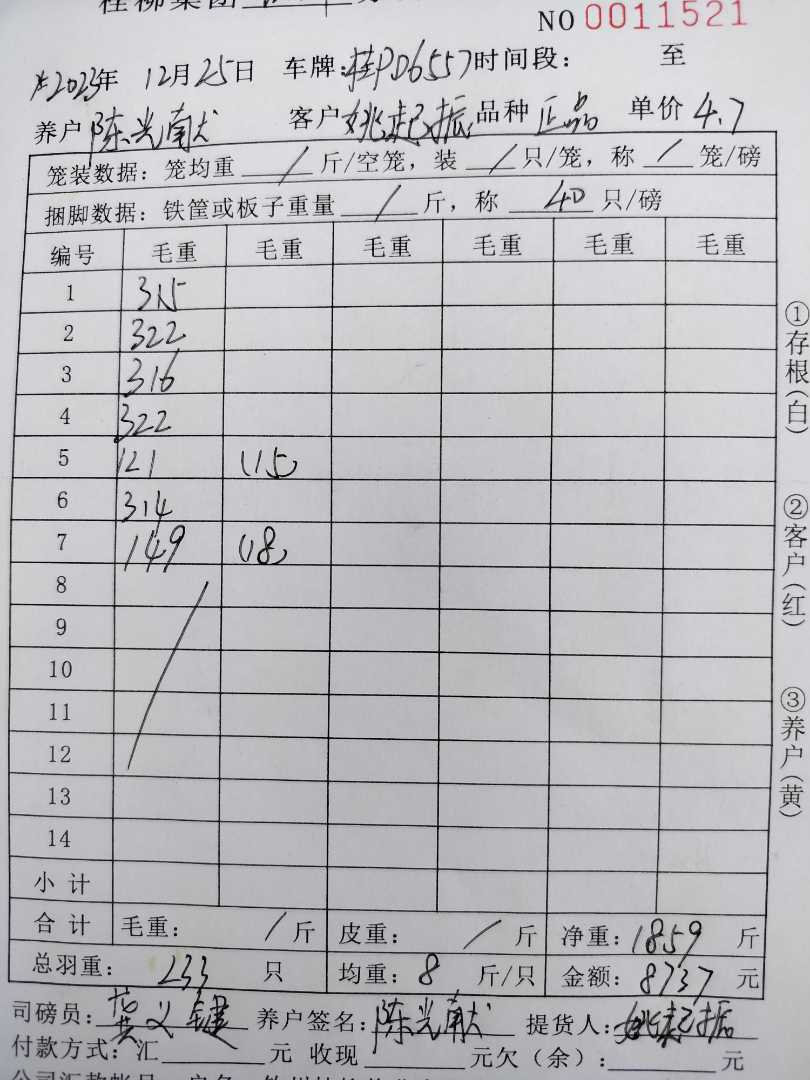 桂柳集团
NO 0011521
2023年 12月25日 车牌:桂PD6557 时间段: 至
养户 陈光献 客户 姚起振 品种 正品 单价 4.7
笼装数据:笼均重 / 斤/空笼,装 / 只/笼,称 / 笼/磅
捆脚数据:铁筐或板子重量 / 斤,称 40 只/磅
编号 毛重 毛重 毛重 毛重 毛重 毛重
1 315
2 322
3 316
4 322
5 121 (15)
6 314
7 149 (18)
8
9
10
11
12
13
14
小 计
合 计 毛重: / 斤 皮重: / 斤 净重:1859 斤
总羽重: 233 只 均重:8 斤/只 金额:8737 元
司磅员:黄义键 养户签名:陈光献 提货人:姚起振
付款方式:汇 元 收现 元欠(余): 元
①存根(白)
②客户(红)
③养户(黄)